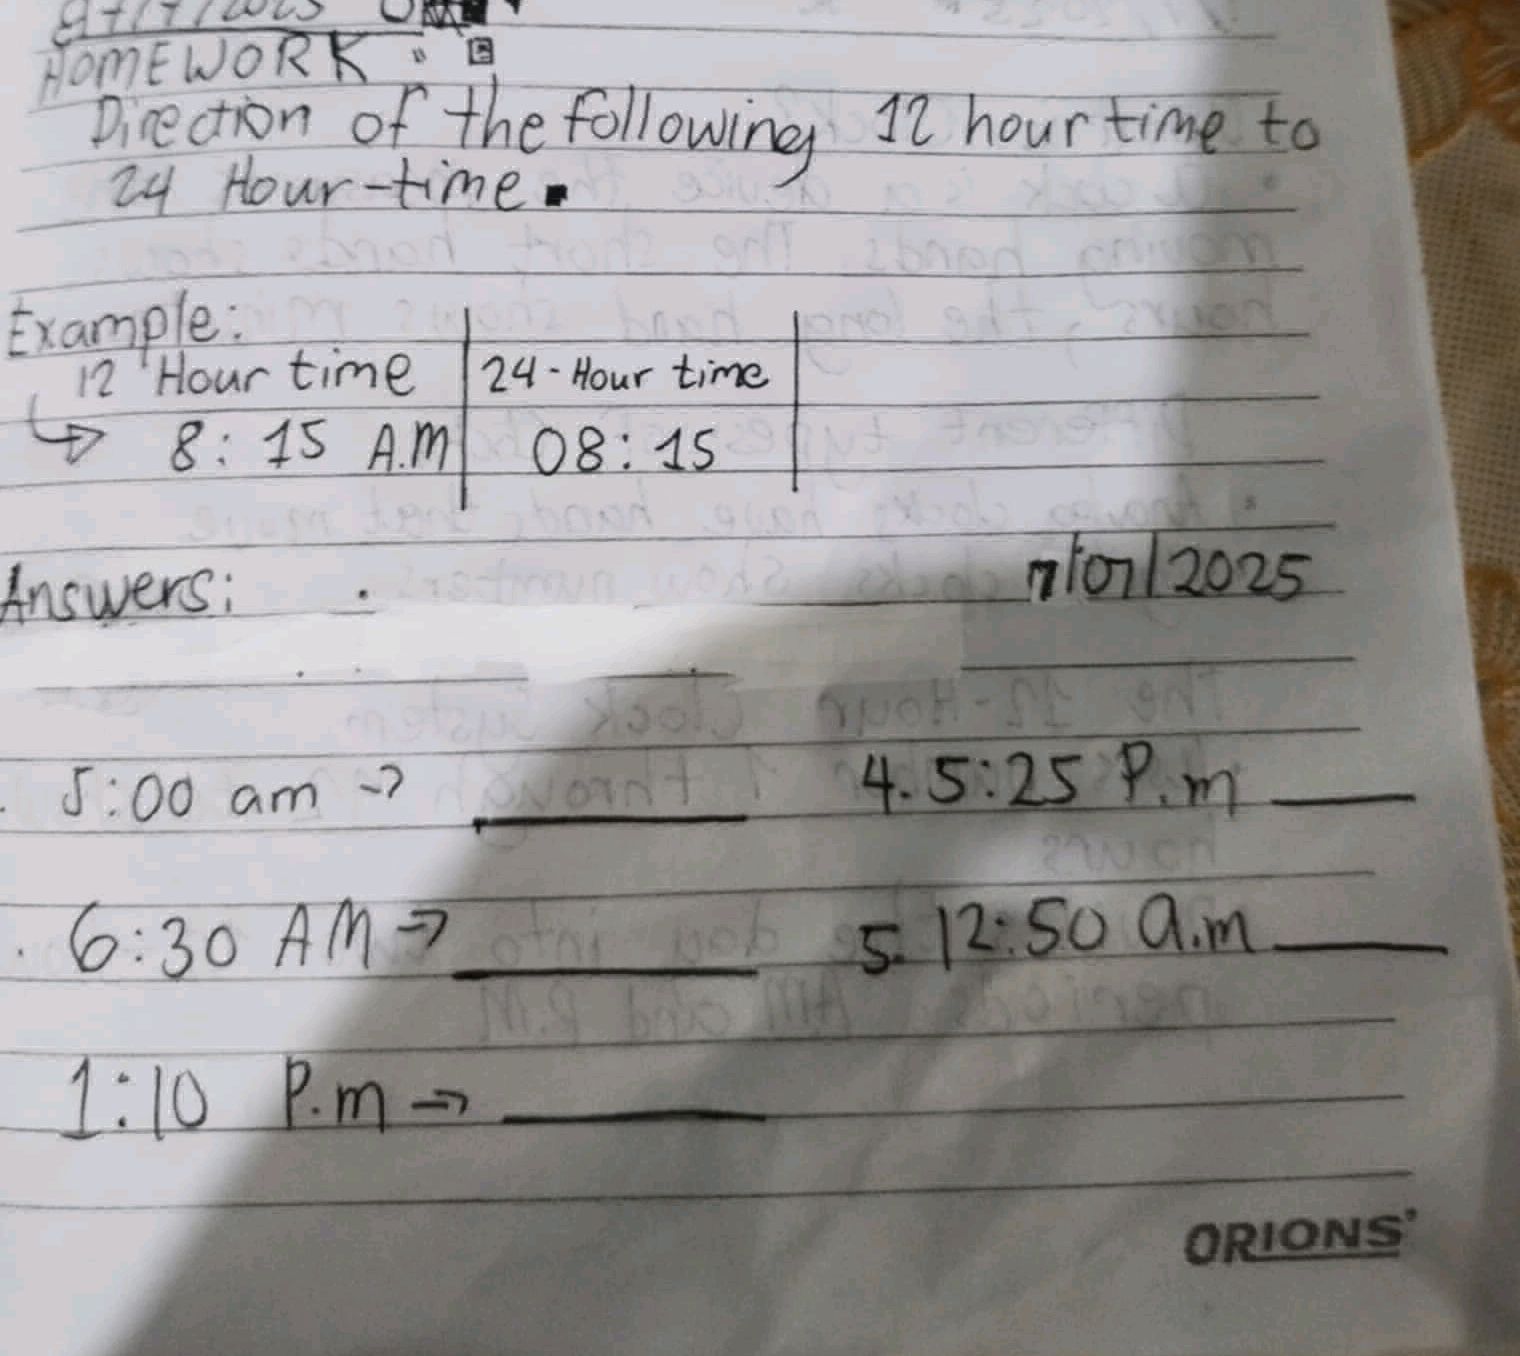 HOMEWORK :
Direction of the following 12 hour time to
24 Hour-time.
Example:
12 Hour time 24-Hour time
8:15 A.M 08:15
Answers:
7/07/2025
5:00 am →
4. 5:25 P.m
6:30 AM →
5. 12:50 a.m
1:10 P.m →
ORIONS